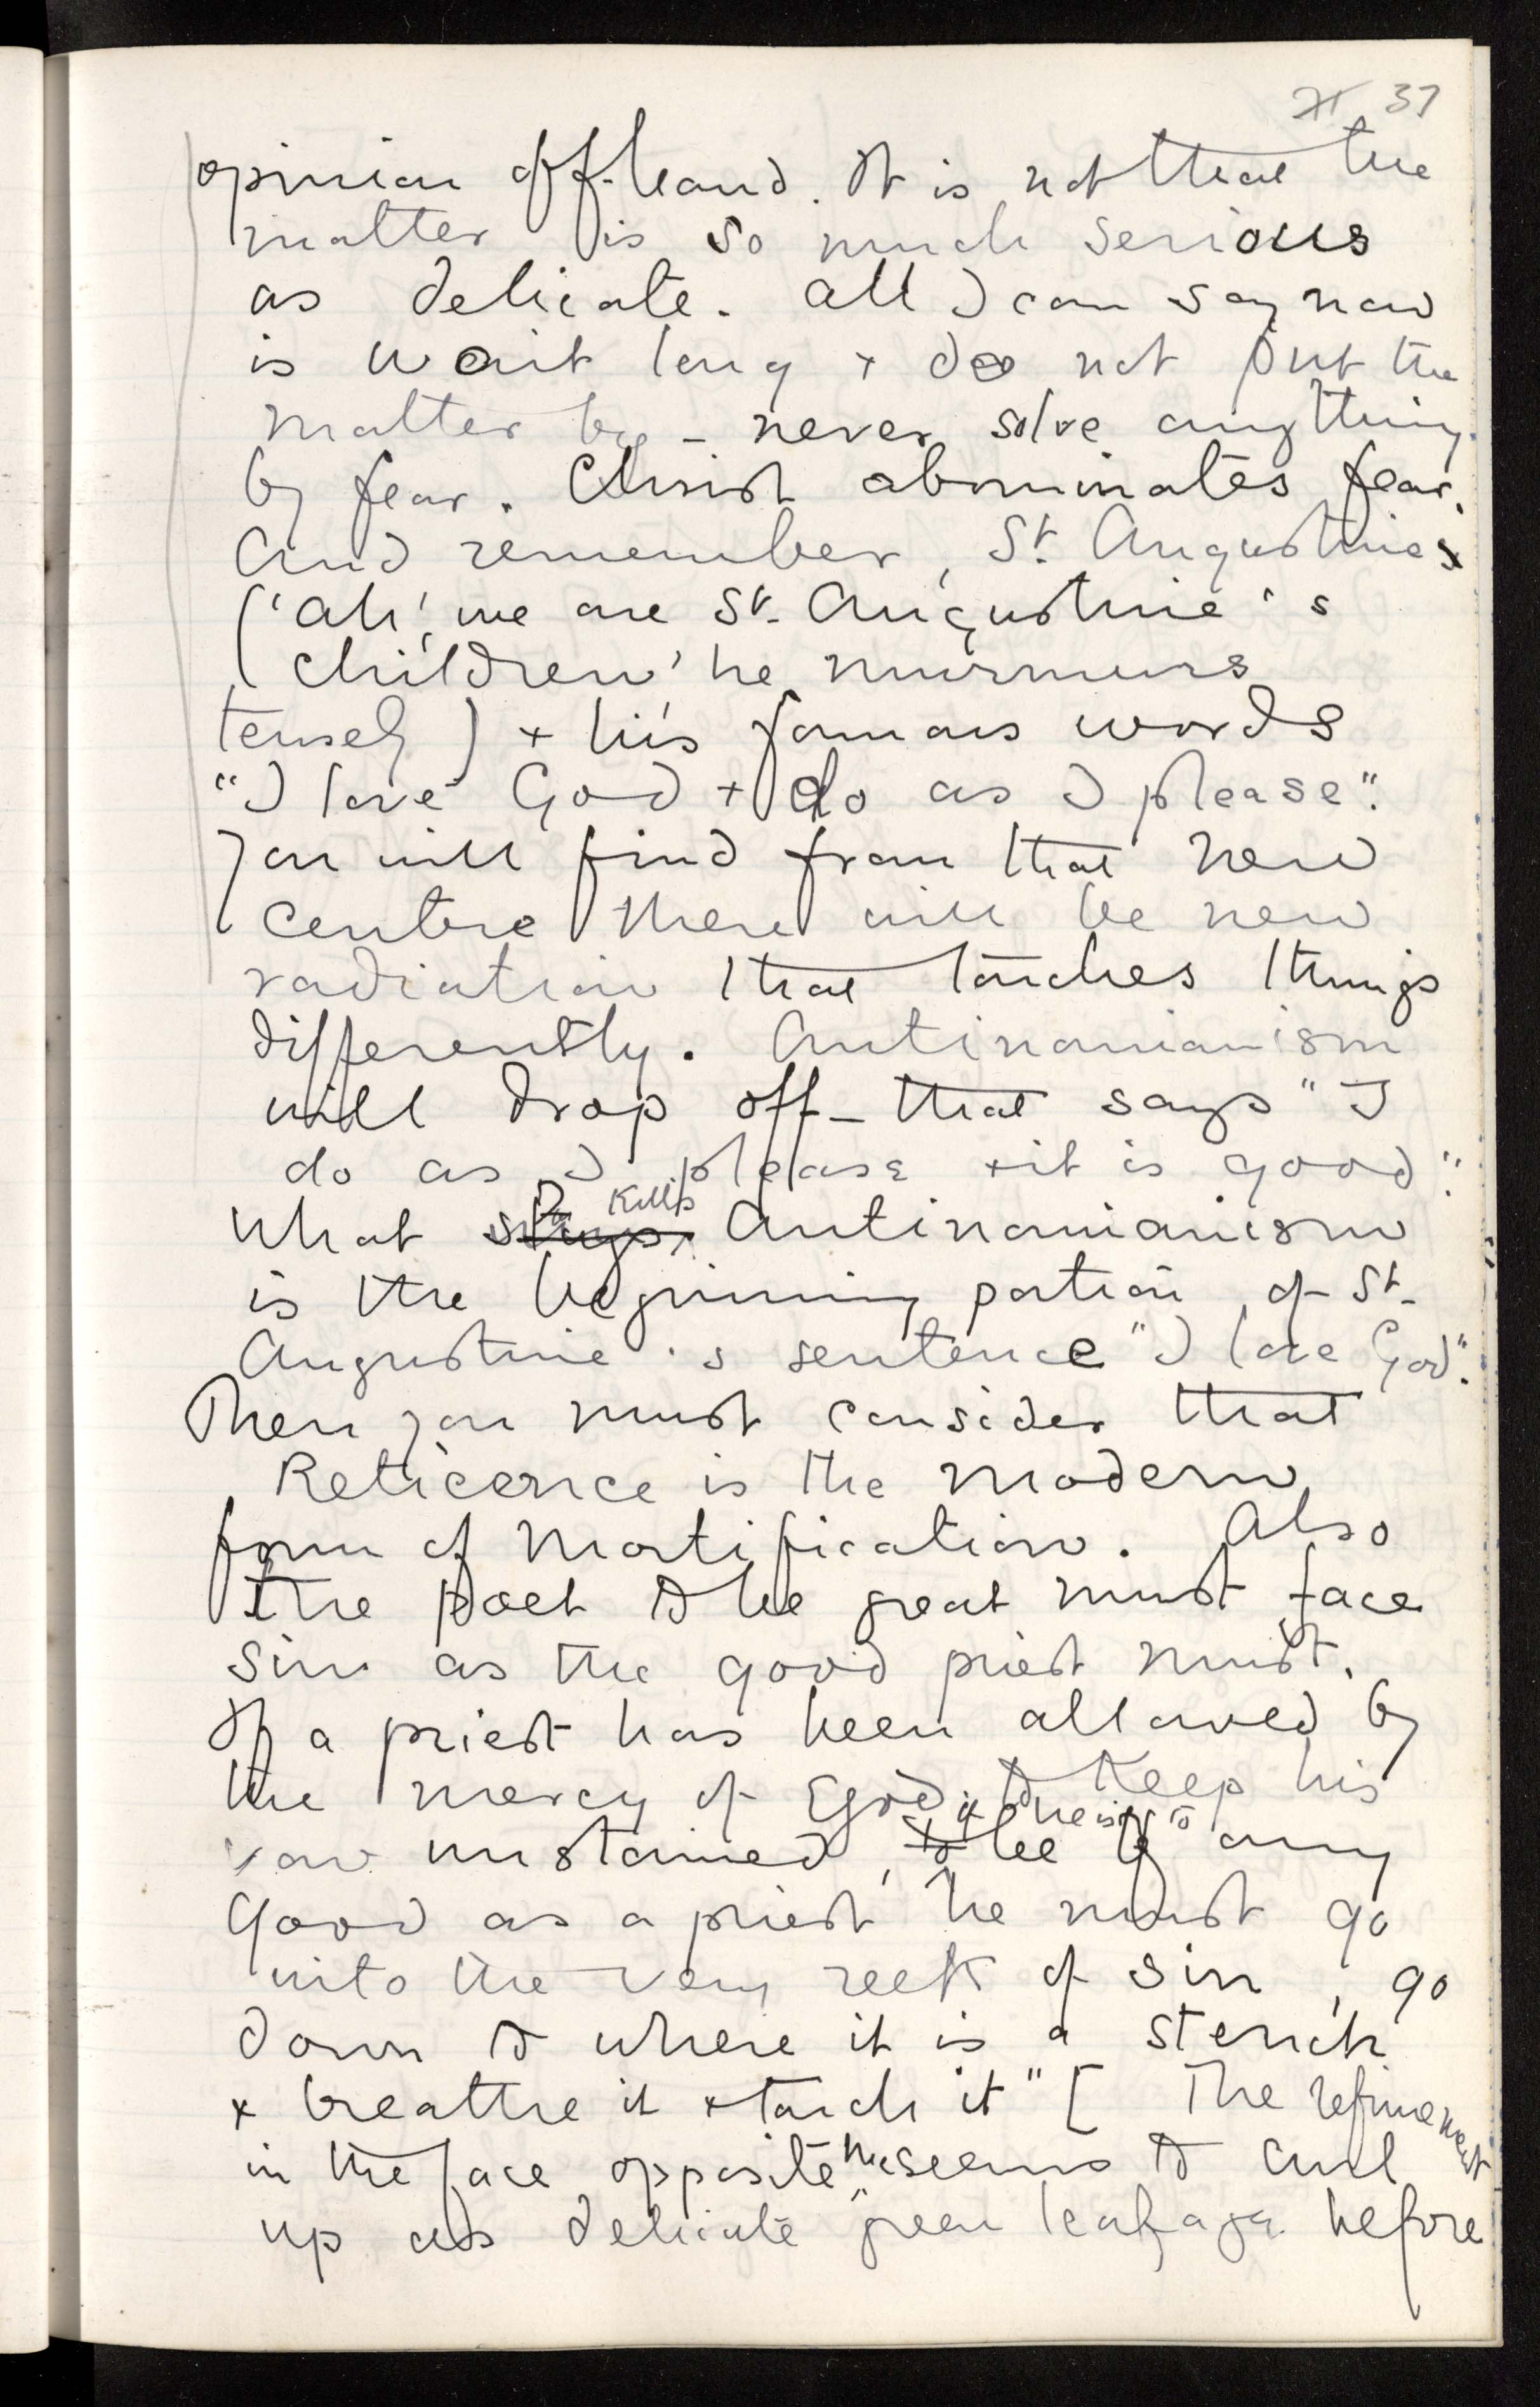 37
opinion off-hand. It is not that the
matter is so much serious
as delicate. All I can say now
is wait long + do not put the
matter by – never solve anything
by fear. Christ abominates fear.
And remember, St. Augustine
('Ah', we are St. Augustine's
children' he murmurs
tensely) + his famous words
"I love God + do as I please".
You will find from that new
centre there will be new
radiation that touches things
differently. Antinomianism
will drop off – that says "I
do as I please + it is good".
What kills Antinomianism
is the beginning portion, of St.
Augustine's sentence "I love God".
Then you must consider that
Reticence is the modern
form of Mortification. Also
the poet to be great must face
sin as the good priest must.
If a priest has been allowed by
the mercy of God to keep his
vow unstained, & he is to be of any
good as a priest he must go
into the very reek of sin, go
down to where it is a stench
+ breathe it + touch it" [ The refinement
in the face opposite me seems to curl
up as delicate green leafage before